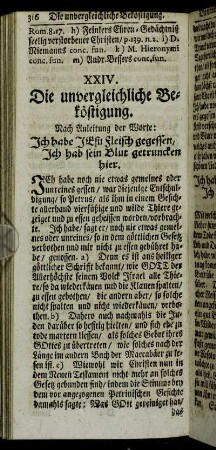 316 Die unvergleichliche Beköstigung.
Rom. 8. 17. h) Feinlers Ehren-Gedächtniß
seelig verstorbener Christen / p. 139. n. 2. i) D.
Niemanns conc. fun. k) M. Hieronymi
conc. fun. m) Andr. Beyers conc. fun.
XXIV.
Die unvergleichliche Be-
köstigung.
Nach Anleitung der Worte:
Ich habe JEsu Fleisch gegessen,
Ich hab sein Blut getruncken
hier.
ICh habe noch nie etwas gemeines oder
unreines gessen / war diejenige Entschul-
digung / so Petrus / als ihm in einem Gesich-
te allerhand vierfüßige und wilde Thiere ge-
zeiget und zu essen geheissen worden / vorbrach-
te. Ich habe / sagt er / noch nie etwas gemei-
nes oder unreines / so in dem göttlichen Gesetz
verbothen und mir nicht zu essen gebühret ha-
be / genossen. a) Denn es ist aus heiliger
göttlicher Schrifft bekannt / wie GOTT des
Allerhöchste seinem Volck Jsrael alle Thie-
re / so da wiederkäuen und die Klauen spalten /
zu essen gebothen / die andern aber / so solche
nicht spalten und nicht wiederkäuen / verbo-
then. b) Dahero auch nachmahls die Ju-
den darüber so hefftig hielten / und sich ehe zu
tode martern liessen / als solches Gebot ihres
GOttes zu übertreten / wie solches nach der
Länge im andern Buch der Maccabäer zu le-
sen ist. c) Wiewohl wir Christen nun in
dem Neuen Testament nicht mehr an solches
Gesetz gebunden sind / indem die Stimme bey
dem vor angezogenen Petrinischen Gesichte
damahls sagte: Was GOtt gereiniget hat /
das